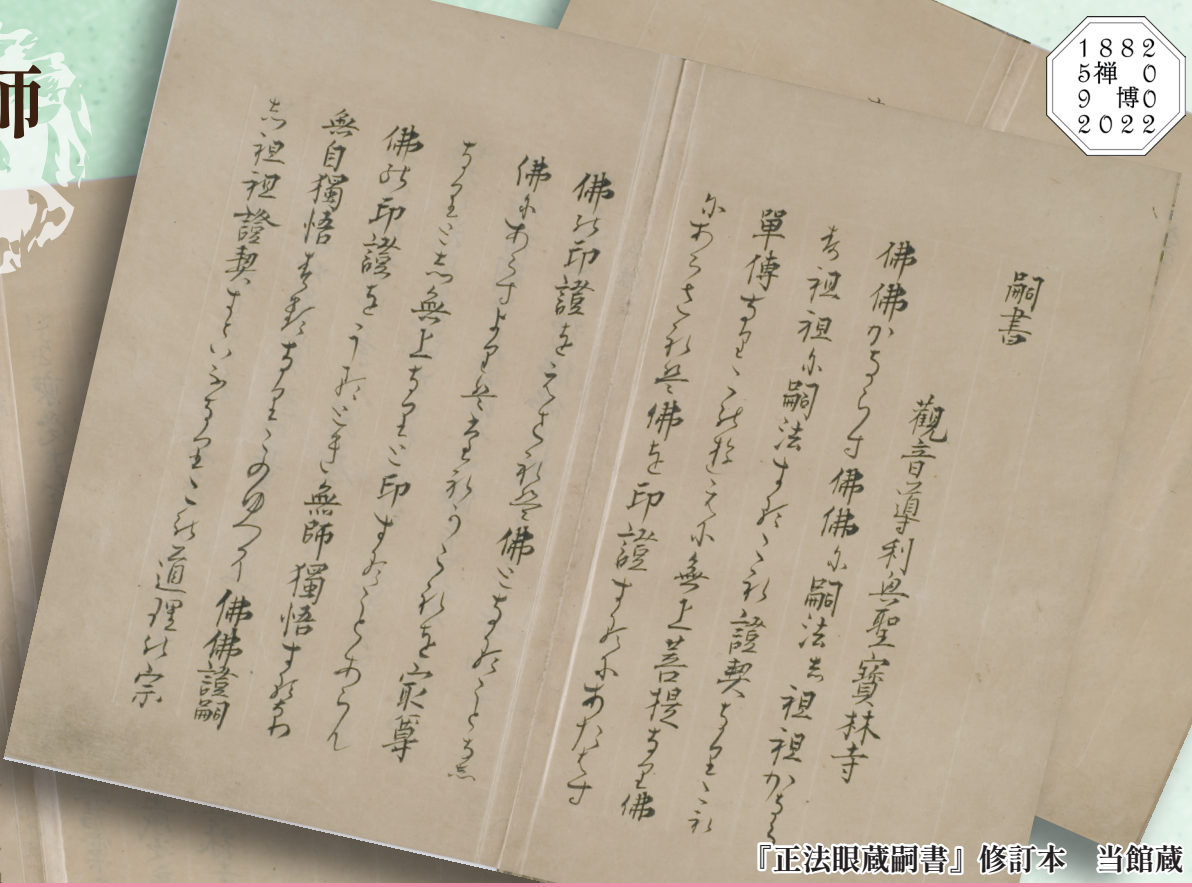 嗣書
觀音導利興聖寶林寺
佛佛かならす佛佛に嗣法し祖祖かなら
す祖祖に嗣法するこれ證契なりこれ
單傳なりこのゆえに無上菩提なり佛
にあらされは佛を印證するにあたはす
佛の印證をえされは佛となることなし
佛にあらすよりはたれかこれを最尊
なりとし無上なりと印することあらん
佛の印證をうるとき無師獨悟するなり
無自獨悟するなりこのゆへに佛佛證嗣
し祖祖證契すといふなりこの道理の宗
1882
5禅 0
9 博0
2022
『正法眼蔵嗣書』修訂本 当館蔵